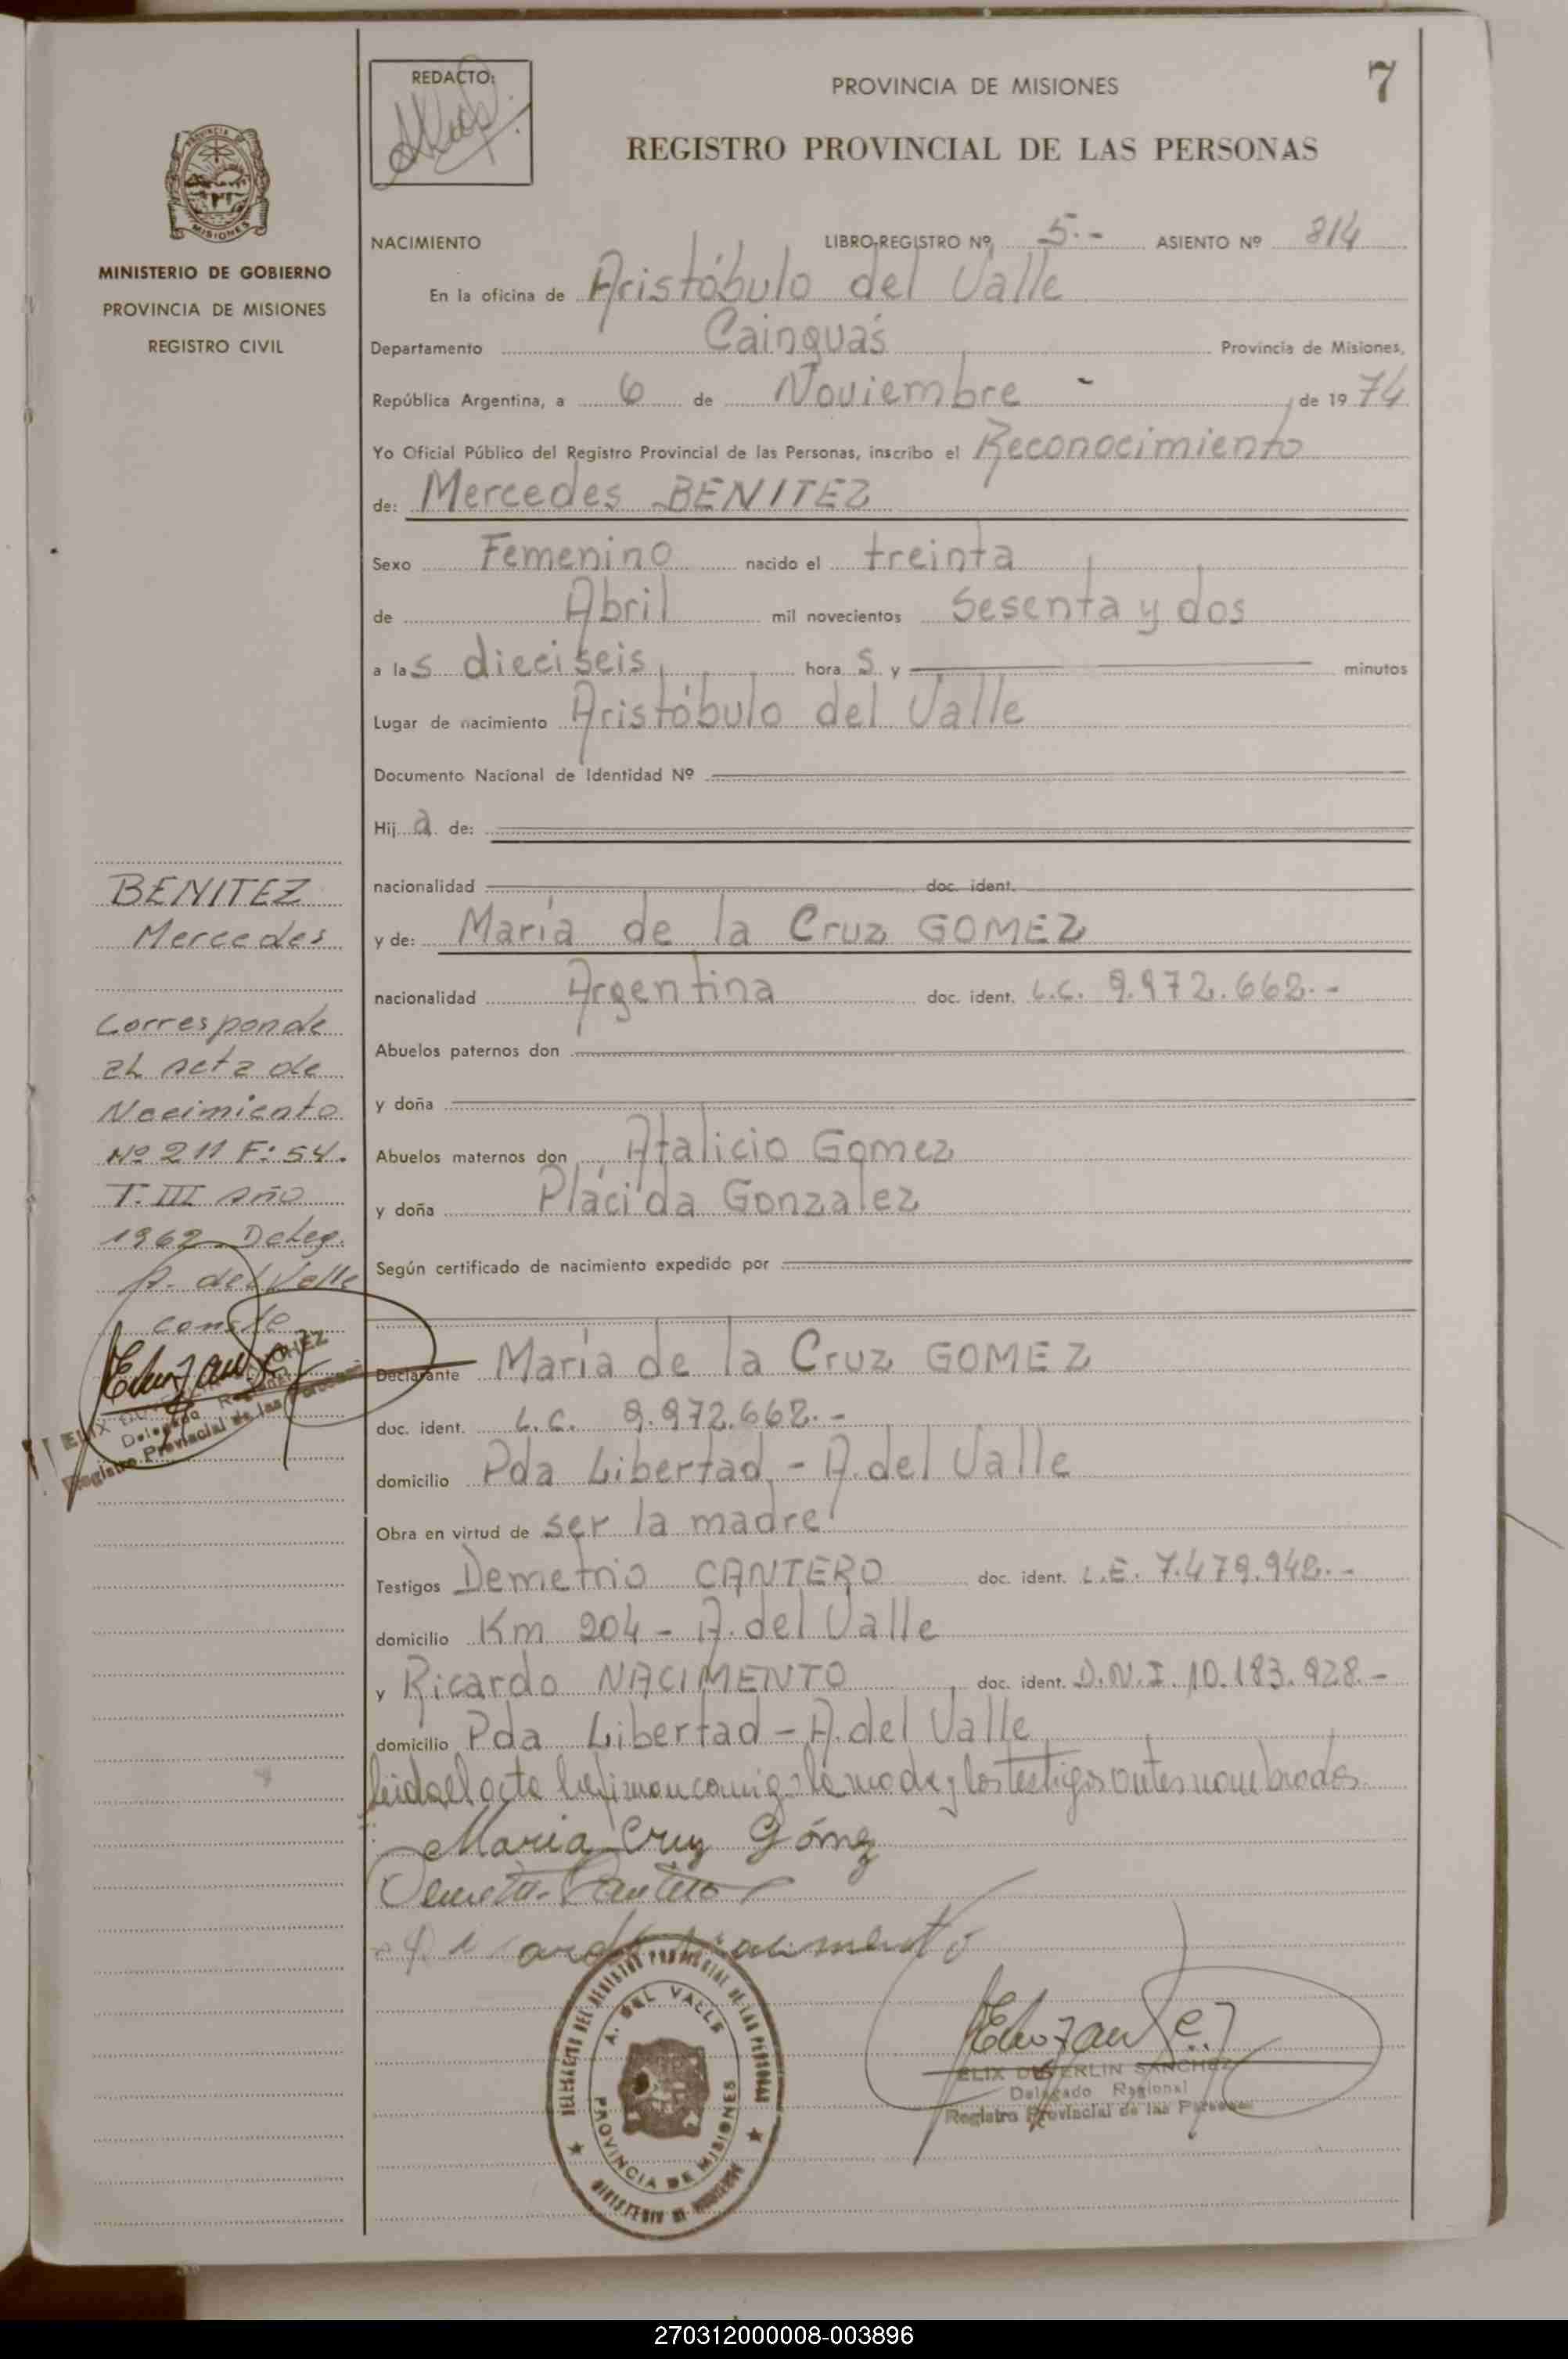 7
REDACTO:
PROVINCIA DE MISIONES
REGISTRO PROVINCIAL DE LAS PERSONAS
PROVINCIA
MISIONES
MINISTERIO DE GOBIERNO
PROVINCIA DE MISIONES
REGISTRO CIVIL
NACIMIENTO LIBRO-REGISTRO Nº 5.- ASIENTO Nº 814
En la oficina de Aristóbulo del Valle
Departamento Cainguás Provincia de Misiones,
República Argentina, a 6 de Noviembre - de 1974
Yo Oficial Público del Registro Provincial de las Personas, inscribo el Reconocimiento
de: Mercedes BENITEZ
Sexo Femenino nacido el treinta
de Abril mil novecientos Sesenta y dos
a las dieciseis hora s y minutos
Lugar de nacimiento Aristóbulo del Valle
Documento Nacional de Identidad Nº
Hij a de:
nacionalidad doc. ident.
y de: María de la Cruz GOMEZ
nacionalidad Argentina doc. ident. L.C. 9.972.662.-
Abuelos paternos don
y doña
Abuelos maternos don Atalicio Gomez
y doña Plácida Gonzalez
Según certificado de nacimiento expedido por
Declarante María de la Cruz GOMEZ
doc. ident. L.C. 9.972.662.-
domicilio Pda Libertad - A. del Valle
Obra en virtud de ser la madre
Testigos Demetrio CANTERO doc. ident. L.E. 7.479.942.-
domicilio Km 204 - A. del Valle
y Ricardo NACIMENTO doc. ident. D.N.I. 10.183.928.-
domicilio Pda Libertad - A. del Valle
leida el acta la firman conmigo la madre y los testigos antes nombrados
Maria Cruz Gómez
Demetrio Cantero
Ricardo Nacimento
BENITEZ
Mercedes
Corresponde
al acta de
Nacimiento
Nº 211 F: 54.
T. III Año
1962 Deleg.
A. del Valle
conste
Delegado Regional
Registro Provincial de las Personas
DELEGACION DEL REGISTRO PROVINCIAL DE LAS PERSONAS
A. DEL VALLE
PROVINCIA DE MISIONES
MINISTERIO DE GOBIERNO
ELIX DUVERLIN SANCHEZ
Delegado Regional
Registro Provincial de las Personas
270312000008-003896